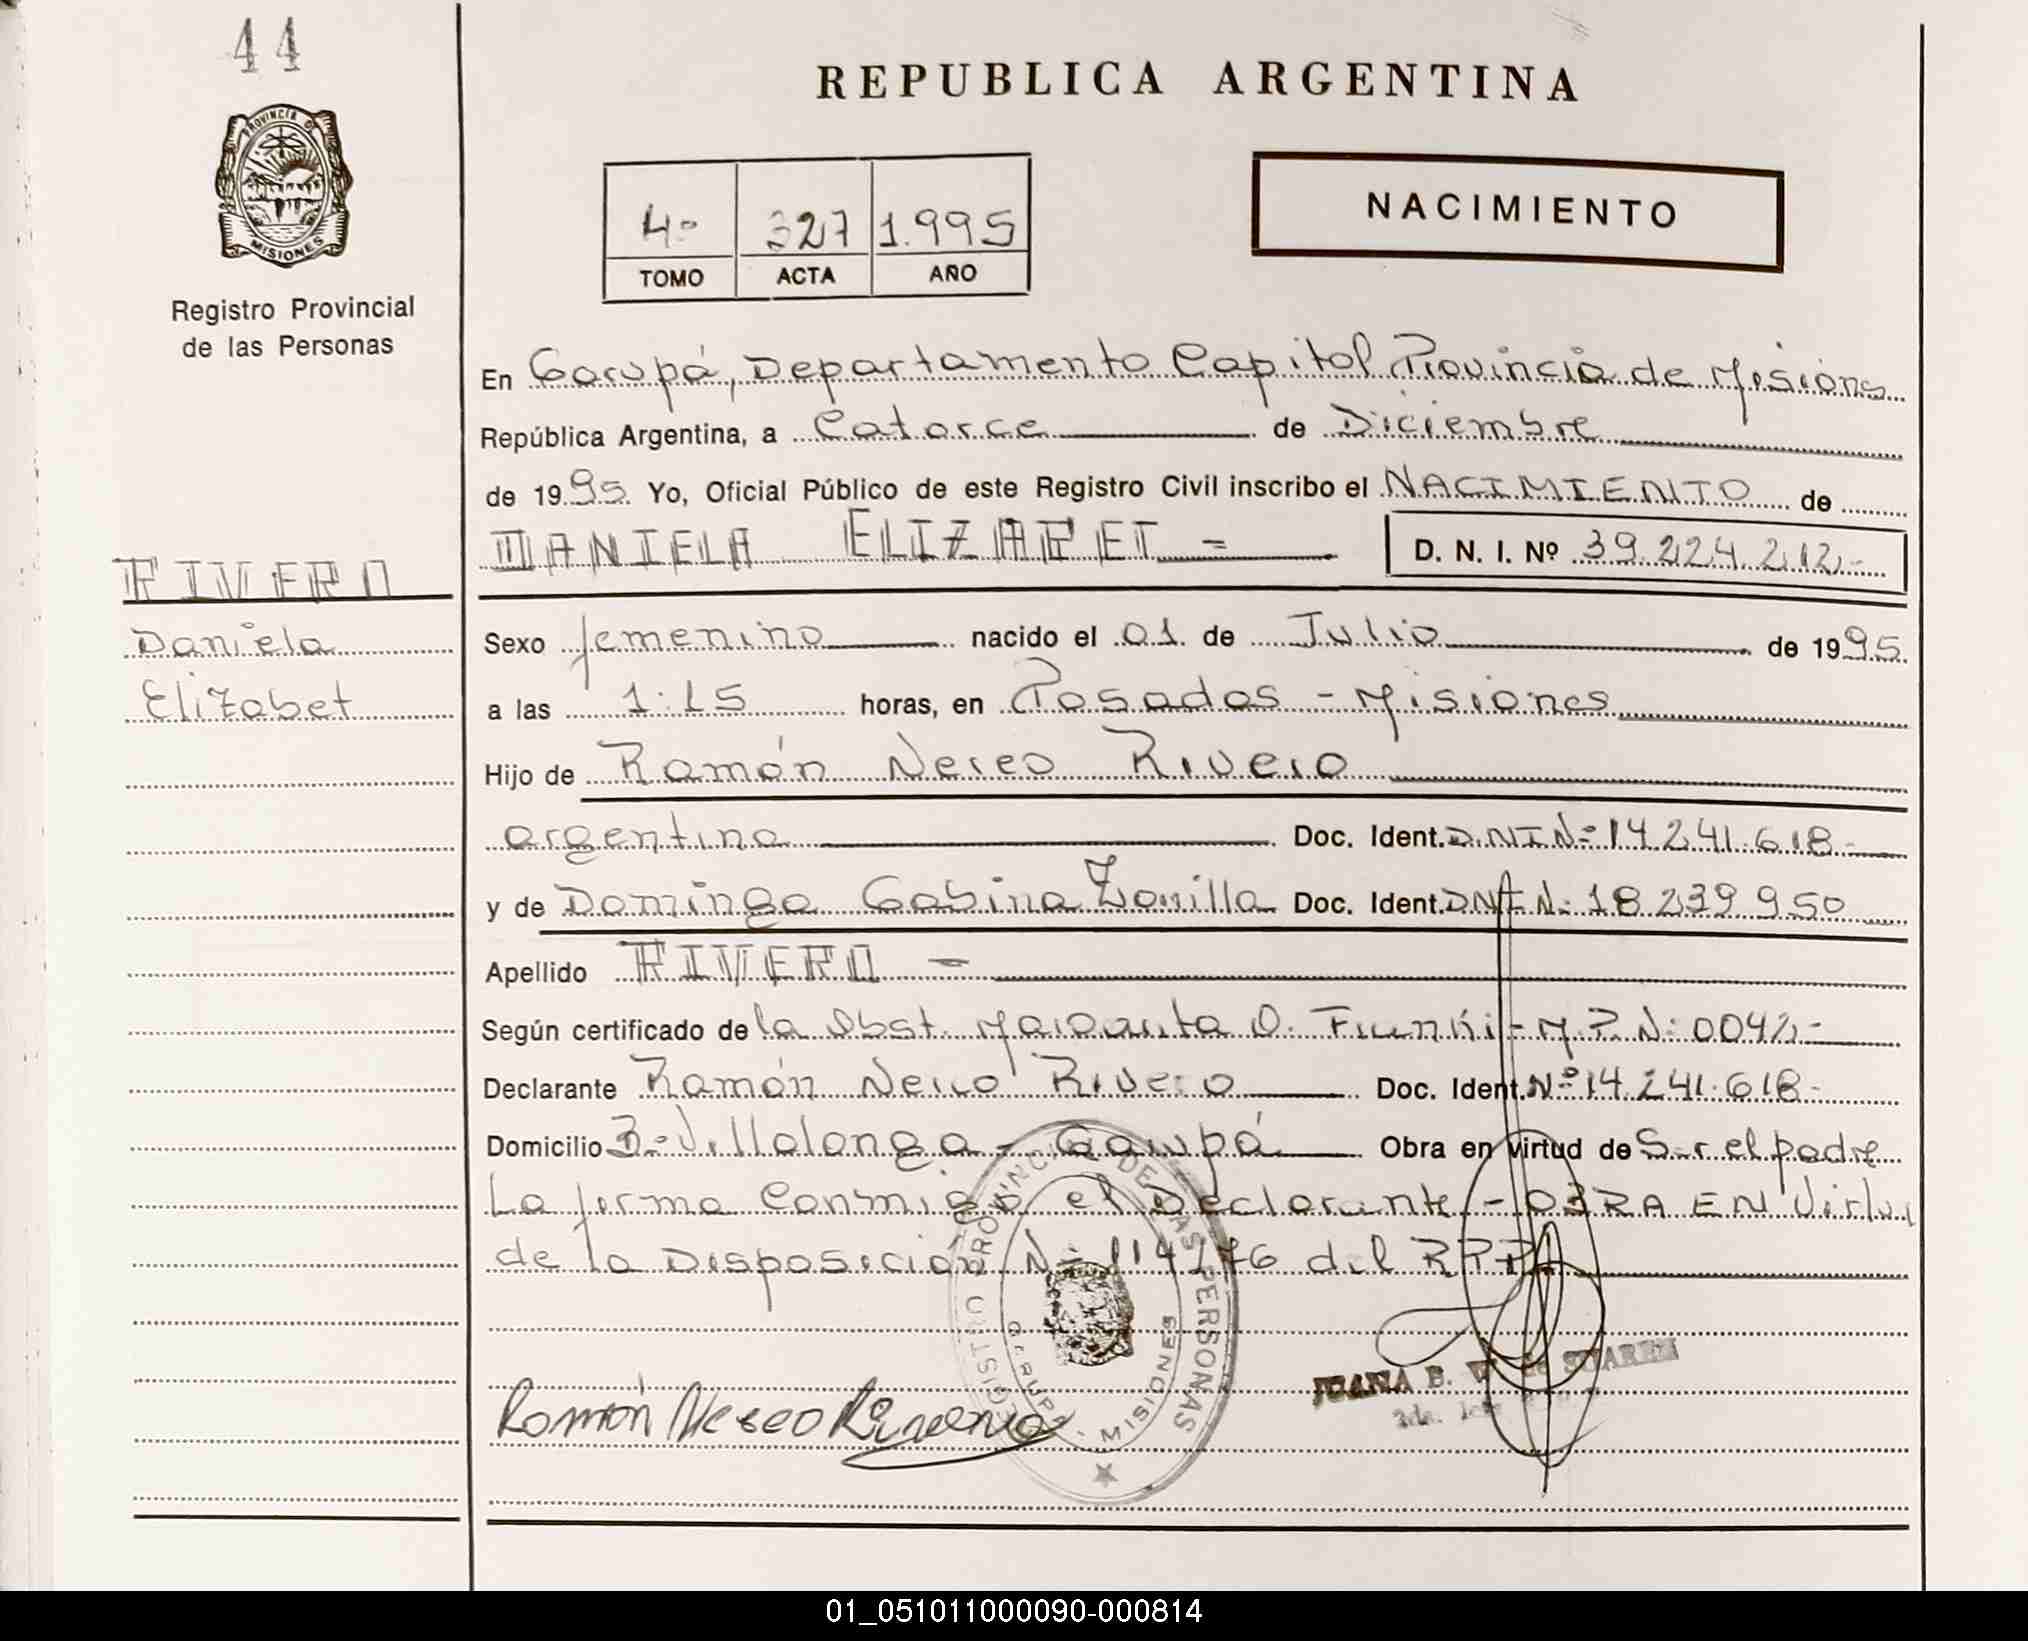 44
REPUBLICA ARGENTINA
PROVINCIA D
MISIONES
Registro Provincial
de las Personas
4º 327 1.995
TOMO ACTA AÑO
NACIMIENTO
En Garupá, Departamento Capital Provincia de Misiones
República Argentina, a Catorce de Diciembre
de 1995 Yo, Oficial Público de este Registro Civil inscribo el NACIMIENTO de
DANIELA ELIZABET =
D. N. I. Nº 39.224.212.-
RIVERO
Daniela
Elizabet
Sexo femenino nacido el 01 de Julio de 1995
a las 1:15 horas, en Posadas - Misiones
Hijo de Ramón Nereo Rivero
argentino Doc. Ident. D.N.I Nº 14.241.618-
y de Dominga Gabina Zorrilla Doc. Ident. DNI N: 18.239.950
Apellido RIVERO -
Según certificado de la Obst. O. M.P. N: 0042-
Declarante Ramón Nereo Rivero Doc. Ident. Nº 14.241.618-
Domicilio Bº Villalonga - Garupá Obra en virtud de Ser el padre
La firma Conmigo el Declarante - OBRA EN Virtud
de la Disposición Nº 114/76 del RPP
REGISTRO PROVINCIAL DE LAS PERSONAS
GARUPA - MISIONES
Ramón Nereo Rivero
JUANA B. W. de SUAREZ
01_051011000090-000814